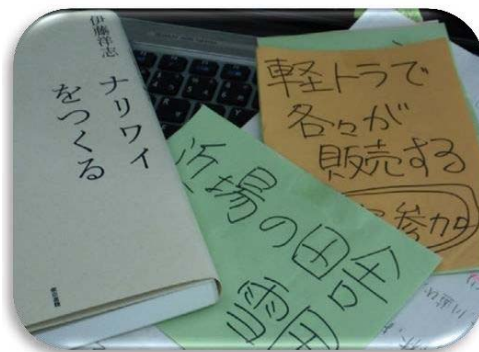 伊藤洋志
ナリワイ
をつくる
軽トラで
各々が
販売する
参加
場の田舎
雇用